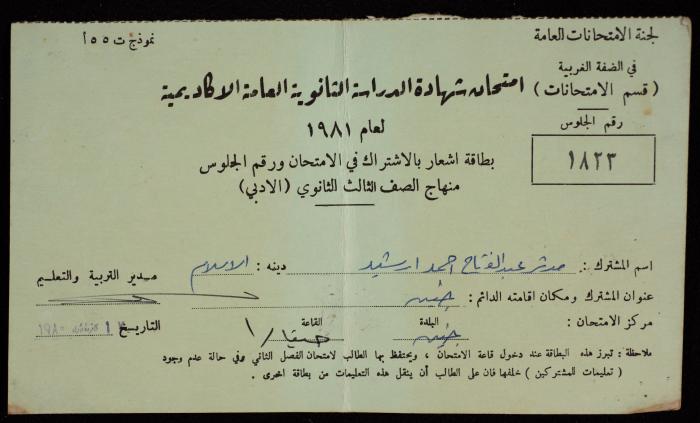 لجنة الامتحانات العامة
نموذج ت ٥٥ أ
في الضفة الغربية
( قسم الامتحانات )
امتحان شهادة الدراسة الثانوية العامة الاكاديمية
رقم الجلوس
لعام ١٩٨١
١٨٢٣
بطاقة اشعار بالاشتراك في الامتحان ورقم الجلوس
منهاج الصف الثالث الثانوي (الادبي)
اسم المشترك : مدثر عبد الفتاح احمد ارشيد دينه : الاسلام
مدير التربية والتعليم
عنوان المشترك ومكان اقامته الدائم : جنين
مركز الامتحان : البلدة جنين القاعة التاريخ
ملاحظة : تبرز هذه البطاقة عند دخول قاعة الامتحان ، ويحتفظ بها الطالب لامتحان الفصل الثاني وفي حالة عدم وجود
( تعليمات للمشتركين ) خلفها فان على الطالب أن ينقل هذه التعليمات من بطاقة اخرى .